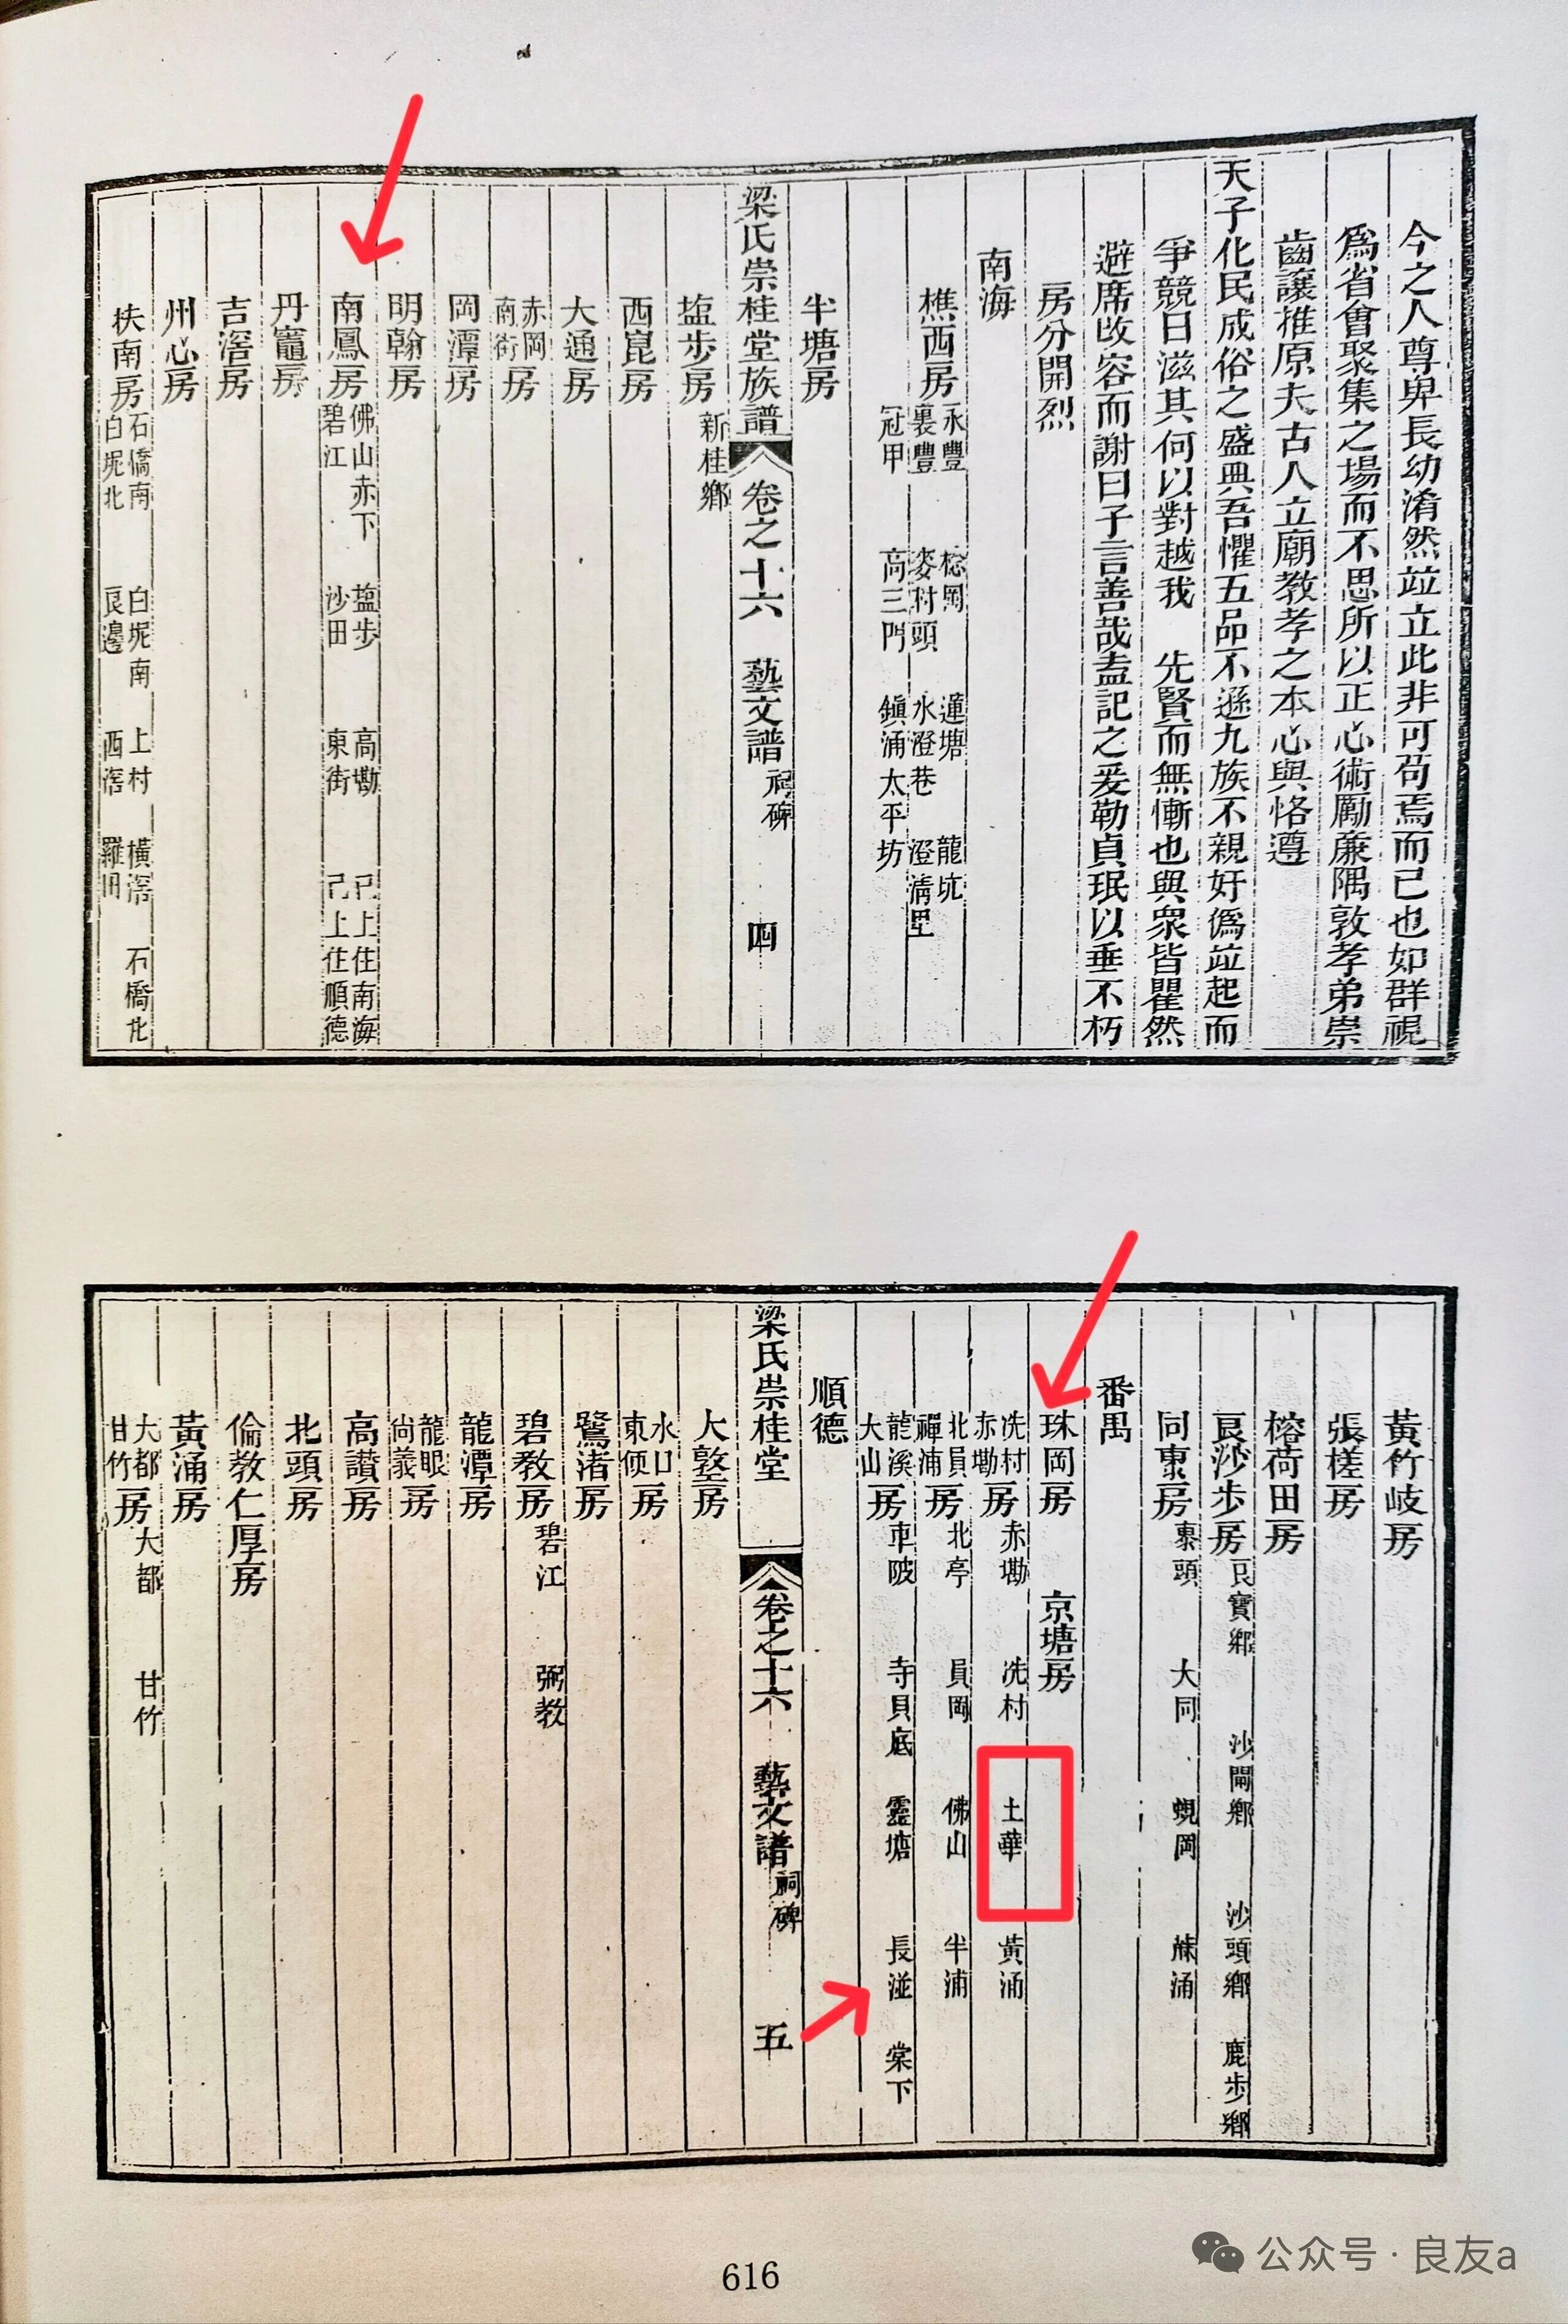 今之人尊卑長幼淆然竝立此非可苟焉而已也如群視
爲省會聚集之場而不思所以正心術勵廉隅敦孝弟崇
齒讓推原夫古人立廟教孝之本心與恪遵
天子化民成俗之盛典吾懼五品不遜九族不親好僞竝起而
爭競日滋其何以對越我　先賢而無慚也與衆皆瞿然
避席改容而謝曰子言善哉盍記之爰勒貞珉以垂不朽
房分開列
南海
樵西房 永豐 棯岡 蓮塘 龍坑
裏豐 麥村頭 水澄巷 澄清里
冠甲 高三門 鎮涌太平坊
半塘房
梁氏崇桂堂族譜 卷之十六 藝文譜 祠碑 四
塩步房 新桂鄉
西崑房
大通房
赤岡南街房
岡潭房
明翰房
南鳳房 佛山赤下 塩步 高墈 已上住南海
碧江 沙田 東街 已上住順德
丹竈房
吉滘房
州心房
扶南房 石僑南 白坭南 上村 橫滘 石橋北
白坭北 良邊 西滘 羅田
黃竹岐房
張槎房
榕荷田房
良沙步房 良寶鄉 沙閘鄉 沙頭鄉 鹿步鄉
同東房 寨頭 大同 蜆岡 蔴涌
番禺
珠岡房 京塘房
冼村赤墈房 赤墈 冼村 土華 黃涌
北員禪浦房 北亭 員岡 佛山 半浦
龍溪大山房 車陂 寺貝底 雲塘 長湴 棠下
順德
梁氏崇桂堂 卷之十六 藝文譜 祠碑 五
大墪房
水口東便房
鷺渚房
碧教房 碧江 弼教
龍潭房
龍眼尚義房
高讚房
北頭房
倫教仁厚房
黃涌房
大都甘竹房 大都 甘竹
616
公众号 · 良友a